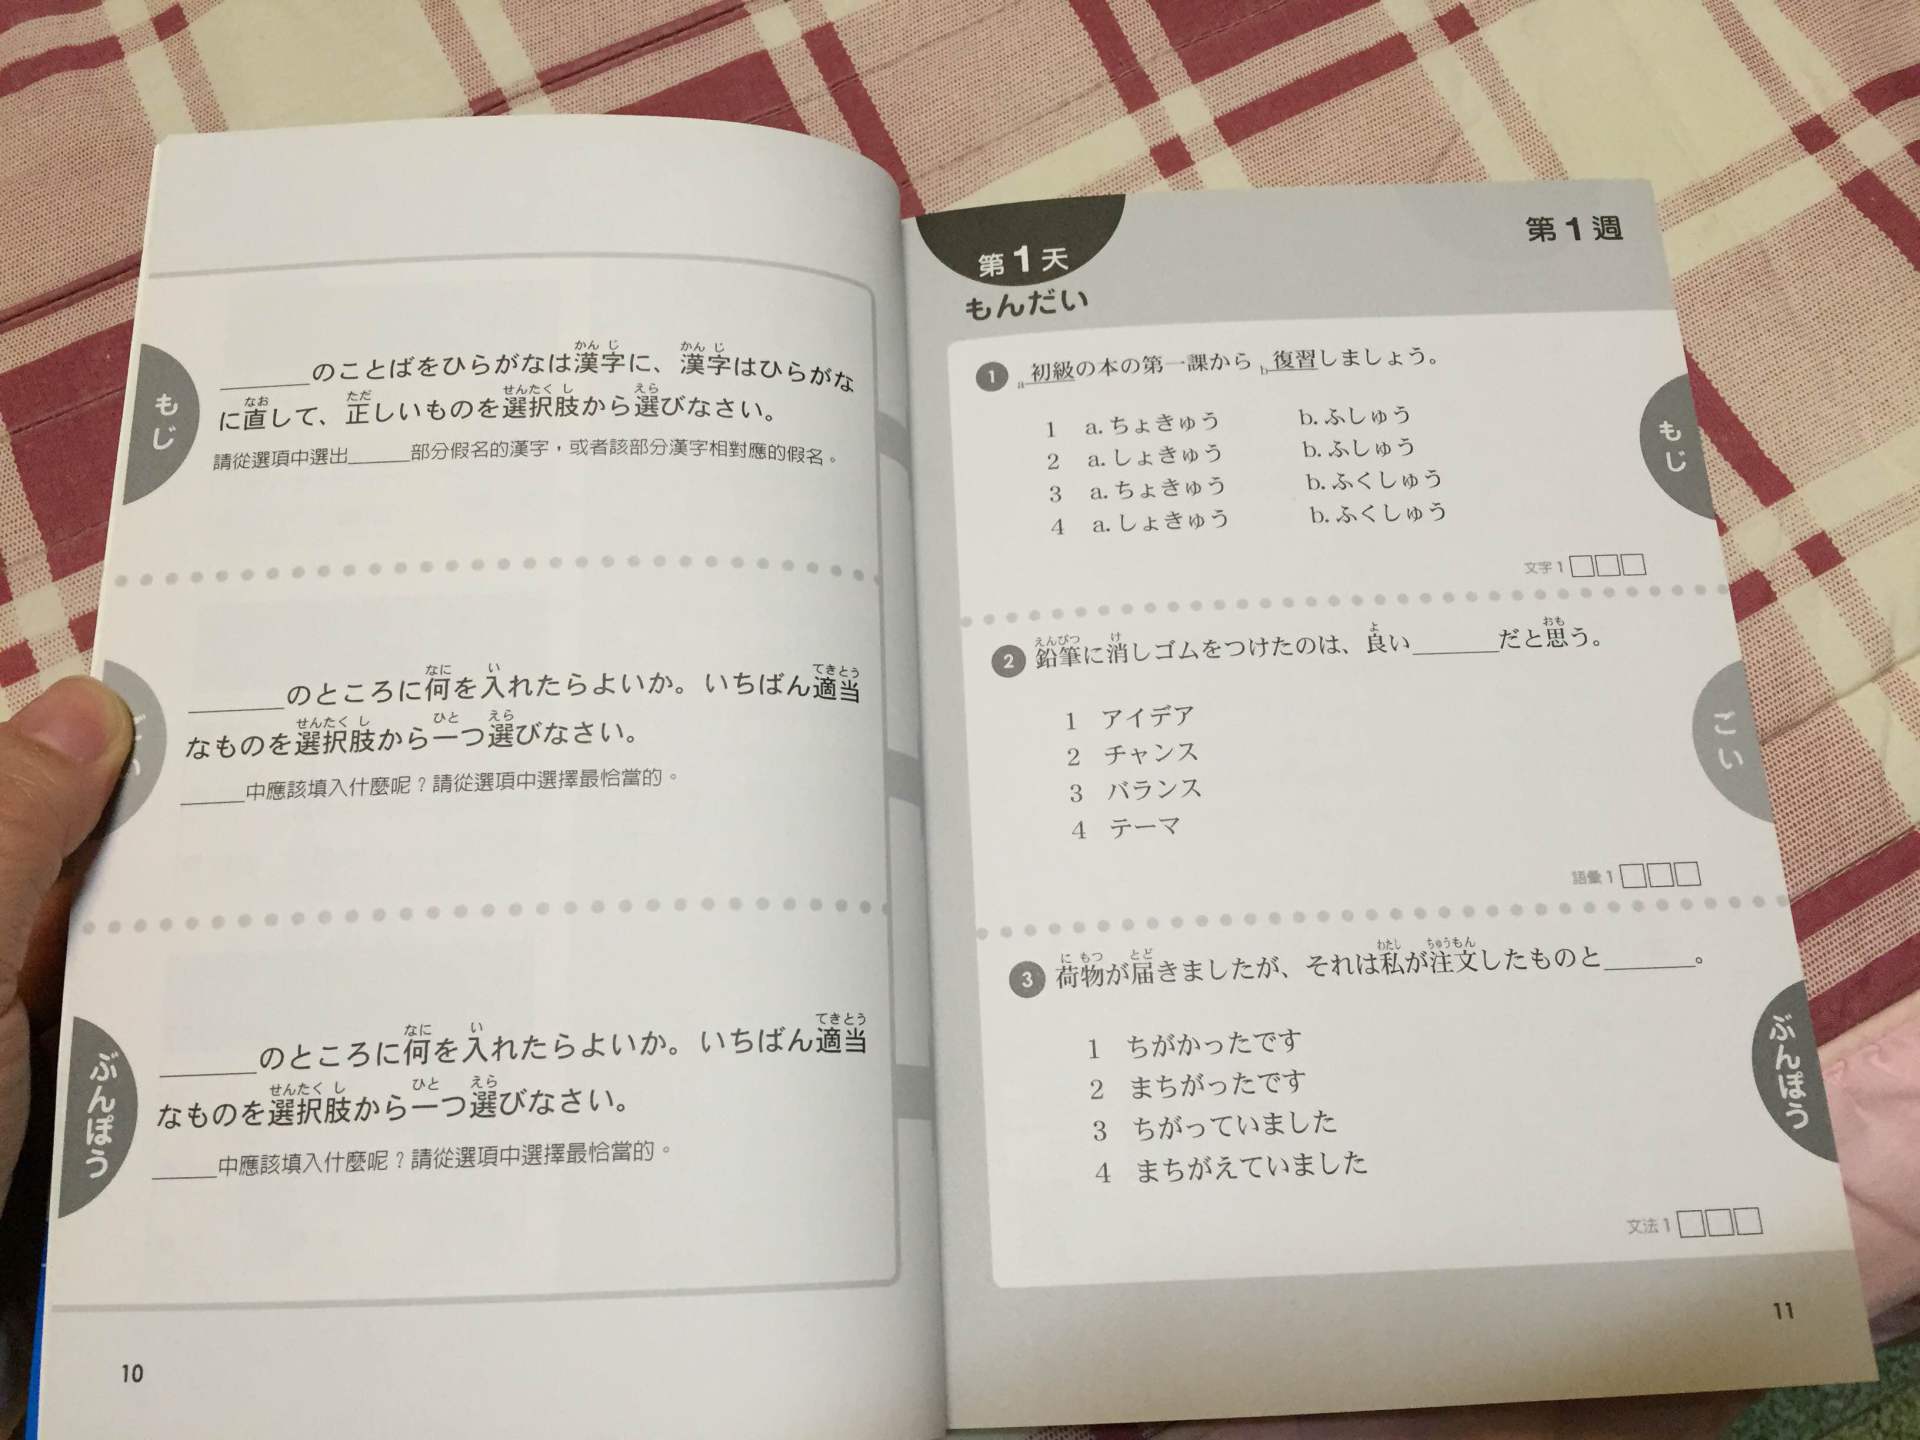 もじ
______のことばをひらがなは漢字に、漢字はひらがな
かん じ かん じ
に直して、正しいものを選択肢から選びなさい。
なお ただ せんたく し えら
請從選項中選出______部分假名的漢字，或者該部分漢字相對應的假名。
______のところに何を入れたらよいか。いちばん適当
なに い てきとう
なものを選択肢から一つ選びなさい。
せんたく し ひと えら
______中應該填入什麼呢？請從選項中選擇最恰當的。
ぶんぽう
______のところに何を入れたらよいか。いちばん適当
なに い てきとう
なものを選択肢から一つ選びなさい。
せんたく し ひと えら
______中應該填入什麼呢？請從選項中選擇最恰當的。
10
第1週
第1天
もんだい
もじ
1 a 初級の本の第一課から b 復習しましょう。
1 a. ちょきゅう b. ふしゅう
2 a. しょきゅう b. ふしゅう
3 a. ちょきゅう b. ふくしゅう
4 a. しょきゅう b. ふくしゅう
文字1 □□□
ごい
2 鉛筆に消しゴムをつけたのは、良い______だと思う。
えんぴつ け よ おも
1 アイデア
2 チャンス
3 バランス
4 テーマ
語彙1 □□□
ぶんぽう
3 荷物が届きましたが、それは私が注文したものと______。
に もつ とど わたし ちゅうもん
1 ちがかったです
2 まちがったです
3 ちがっていました
4 まちがえていました
文法1 □□□
11